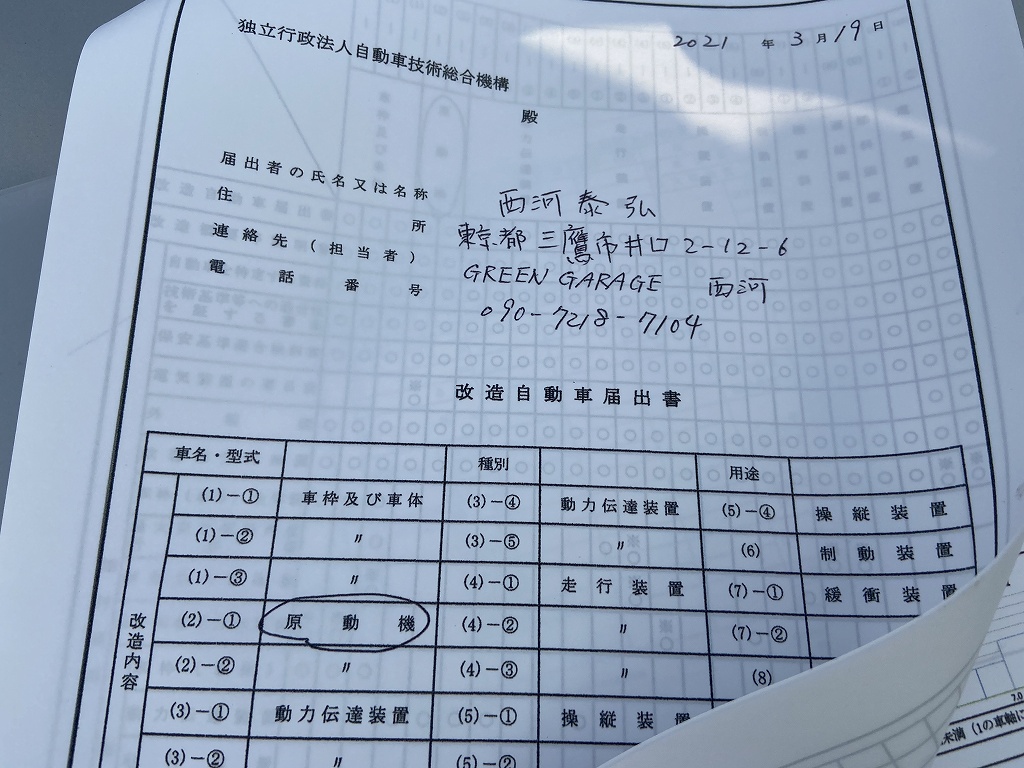 2021 年 3 月 19 日
独立行政法人自動車技術総合機構
殿
届出者の氏名又は名称 西河泰弘
住所 東京都三鷹市井口2-12-6
連絡先(担当者) GREEN GARAGE 西河
電話番号 090-7218-7104
改造自動車届出書
車名・型式 種別 用途
改造内容
(1)-① 車枠及び車体 (3)-④ 動力伝達装置 (5)-④ 操縦装置
(1)-② 〃 (3)-⑤ 〃 (6) 制動装置
(1)-③ 〃 (4)-① 走行装置 (7)-① 緩衝装置
(2)-① 原動機 (4)-② 〃 (7)-②
(2)-② 〃 (4)-③ 〃 (8)
(3)-① 動力伝達装置 (5)-① 操縦装置
(3)-② 〃 (5)-②
7.0
未満(1の車軸に